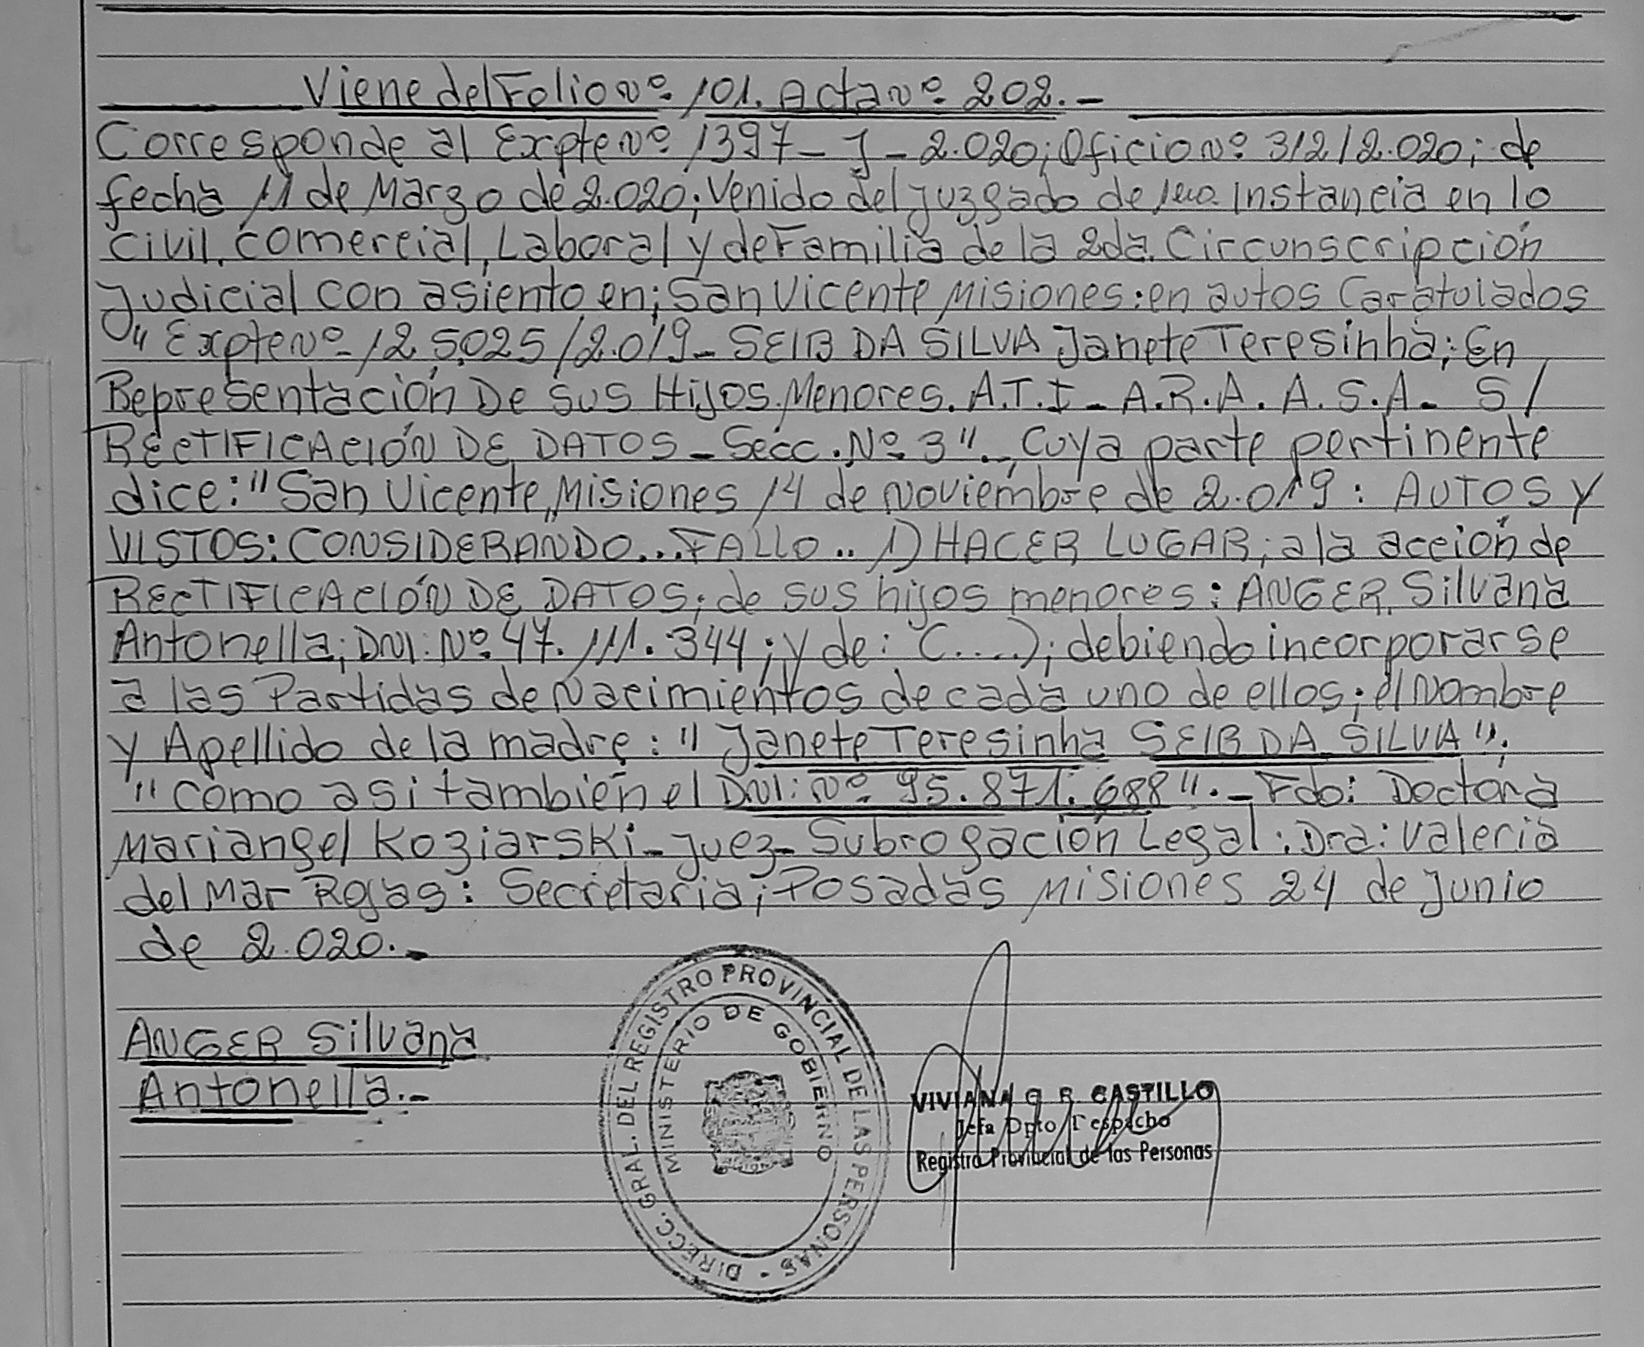 Viene del Folio Nº 101. Acta Nº 202.-
Corresponde al Expte Nº 1397-J-2.020; Oficio Nº 312/2.020; de
fecha 11 de Marzo de 2.020; Venido del Juzgado de 1era. Instancia en lo
Civil, Comercial, Laboral y de Familia de la 2da. Circunscripción
Judicial con asiento en; San Vicente Misiones: en autos Caratulados
"Expte Nº 125025/2.019- SEIB DA SILVA Janete Teresinha; En
Representación De sus Hijos Menores. A.T.I- A.R.A. A.S.A- S/
RECTIFICACIÓN DE DATOS- Secc. Nº 3". Cuya parte pertinente
dice: "San Vicente, Misiones 14 de Noviembre de 2.019: AUTOS Y
VISTOS: CONSIDERANDO...FALLO.. 1) HACER LUGAR; a la acción de
RECTIFICACIÓN DE DATOS; de sus hijos menores: ANGER Silvana
Antonella; DNI: Nº 47.111.344; y de: (....); debiendo incorporarse
a las Partidas de Nacimientos de cada uno de ellos; el Nombre
y Apellido de la madre: "Janete Teresinha SEIB DA SILVA".
"Como asi también el DNI: Nº 95.871.688".- Fdo: Doctora
Mariangel Koziarski- Juez- Subrogación Legal: Dra: Valeria
del Mar Rojas: Secretaria; Posadas Misiones 24 de Junio
de 2.020.-
ANGER Silvana
Antonella.-
DIRECC. GRAL. DEL REGISTRO PROVINCIAL DE LAS PERSONAS -
MINISTERIO DE GOBIERNO
VIVIANA G. R. CASTILLO
Jefa Dpto Despacho
Registro Provincial de las Personas